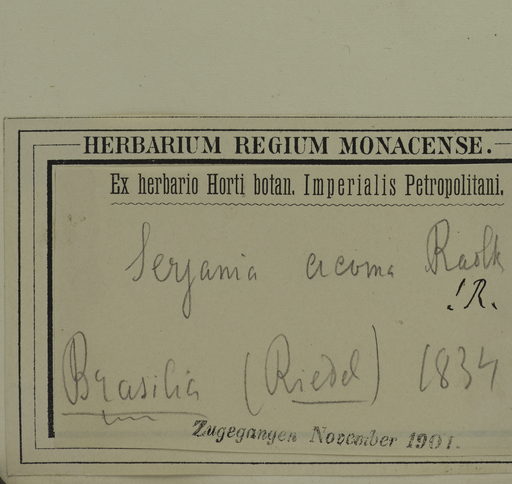 HERBARIUM REGIUM MONACENSE.
Ex herbario Horti botan. Imperialis Petropolitani.
Serjania acoma Radlk
!R.
Brasilia (Riedel) 1834
Zugegangen November 1901.